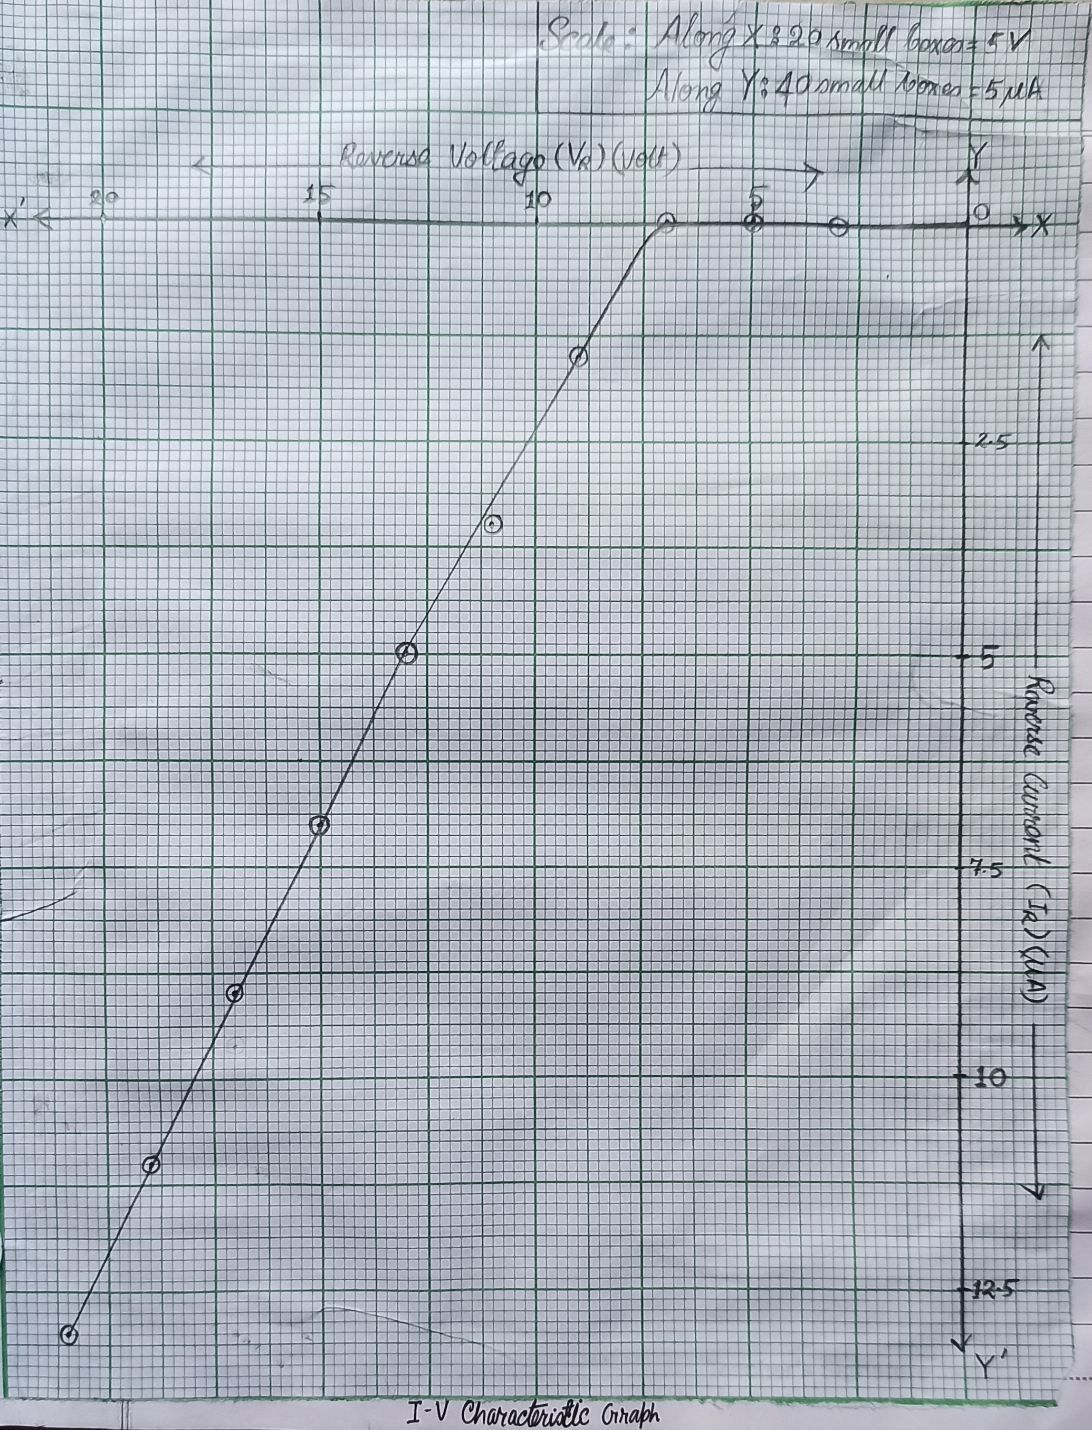 Scale: Along X: 20 small boxes = 5V
Along Y: 40 small boxes = 5 μA
Reverse Voltage (VR) (Volt)
Y
20 15 10 5 O
X' X
2.5
5
7.5
10
12.5
Reverse Current (IR) (μA)
Y'
I-V Characteristic Graph